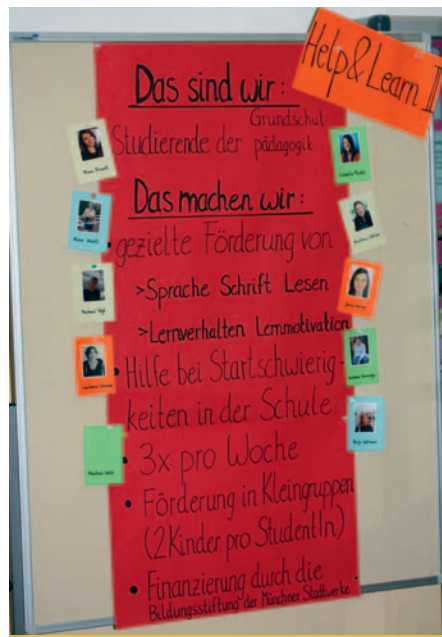 Help & Learn II
Das sind wir:
Studierende der Grundschul-
pädagogik
Das machen wir:
• gezielte Förderung von
>Sprache Schrift Lesen
>Lernverhalten Lernmotivation
• Hilfe bei Startschwierig-
keiten in der Schule
• 3x pro Woche
• Förderung in Kleingruppen
(2Kinder pro StudentIn)
• Finanzierung durch die
Bildungsstiftung der Münchner Stadtwerke